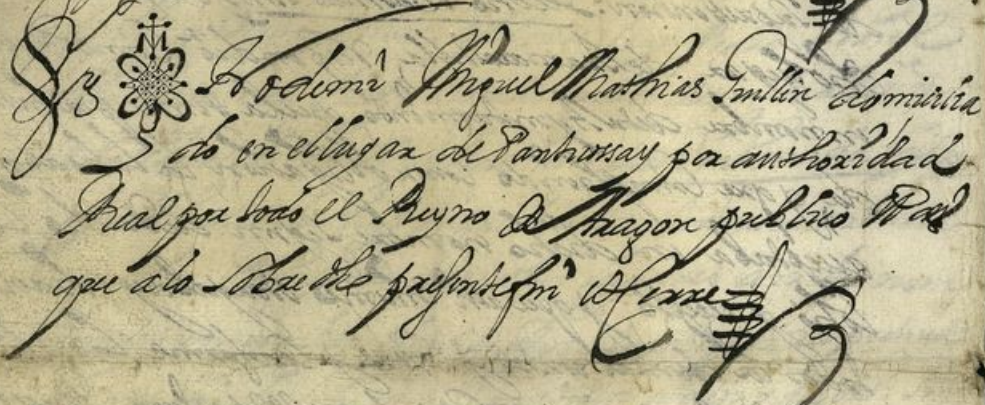 Sig No de mi Miguel Mathias Guillen domicilia
do en el lugar de Panticossa y por authoridad
Real por todo el Reyno de Aragon publico
que a lo sobre dho presente fui et Cerre